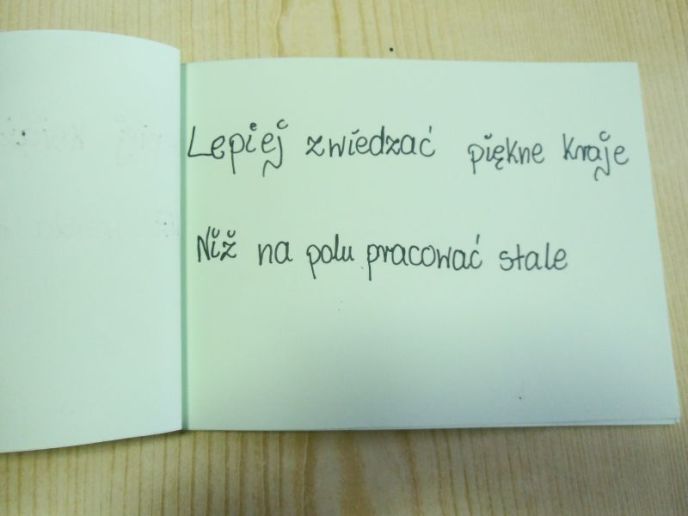 Lepiej zwiedzać piękne kraje
Niż na polu pracować stale